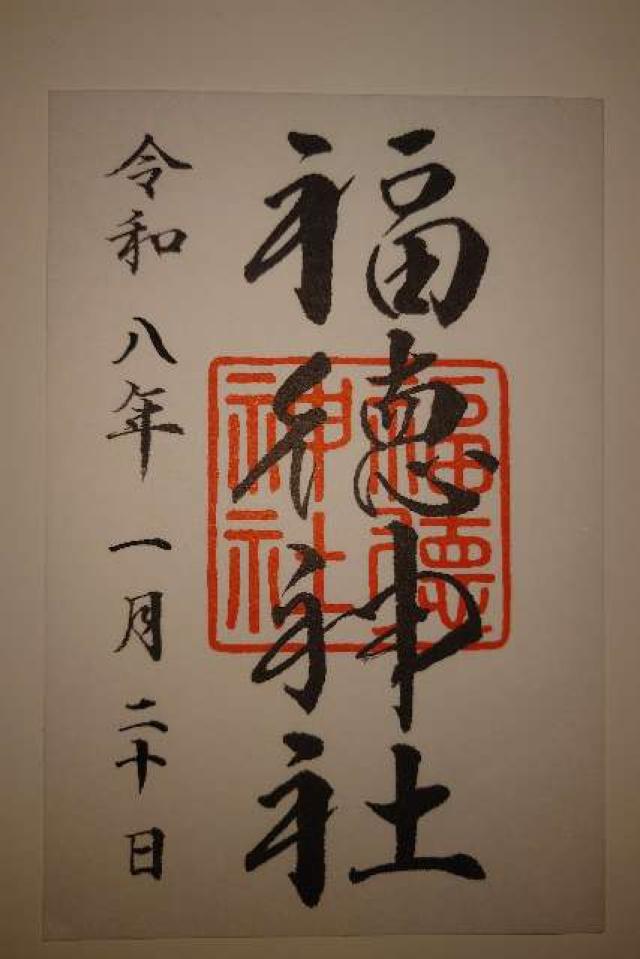 福徳神社
福德
神社
令和八年一月二十日